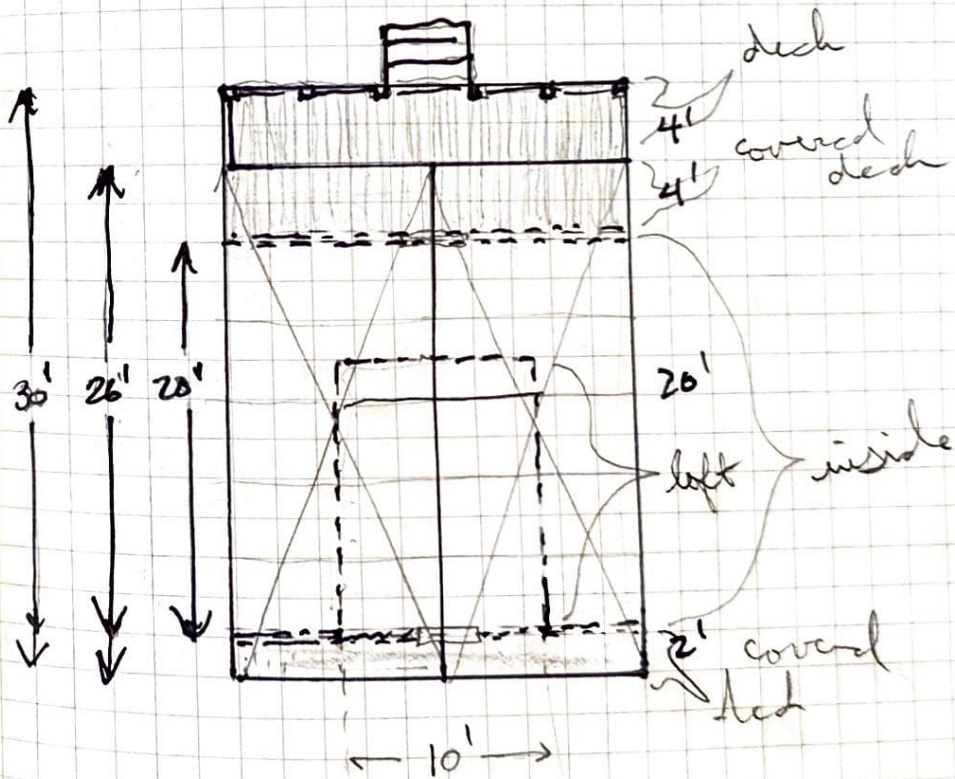 deck
4'
covered
deck
4'
30'
26'
20'
20'
loft
inside
2'
covered
deck
10'